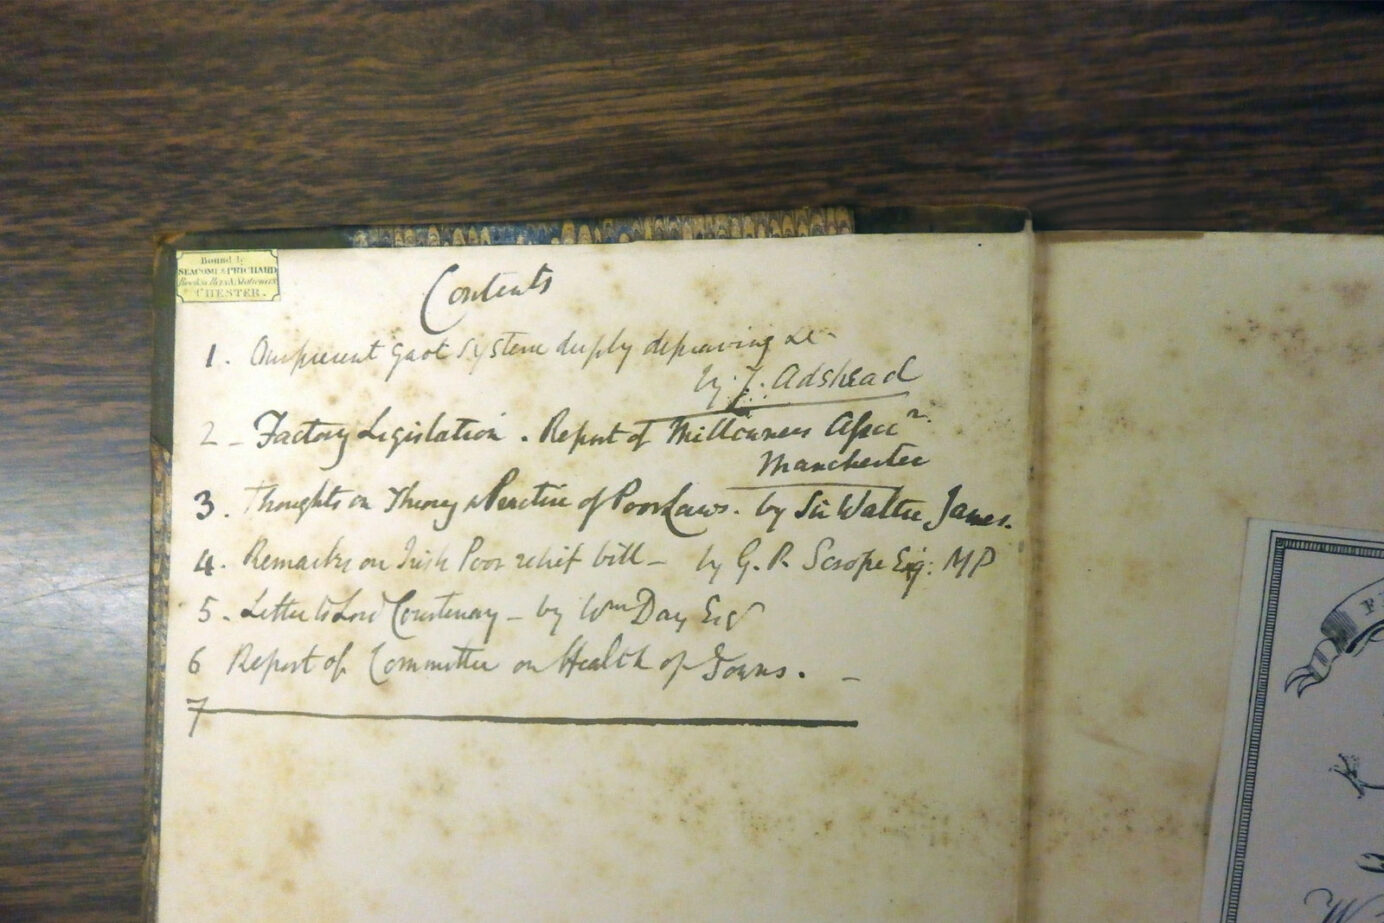 Bound by
SEACOME & PRICHARD
Booksellers & Stationers
CHESTER.
Contents
1. Our present gaol system deeply depraving &c
by J. Adshead
2 - Factory Legislation. Report of Millowners Assocn.
Manchester
3. Thoughts on Theory & Practice of Poor Laws. by Sir Walter James.
4. Remarks on Irish Poor relief bill - by G. P. Scrope Esq: MP
5. Letter to Lord Courtenay - by Wm Day Esq
6 Report of Committee on Health of Towns. -
7